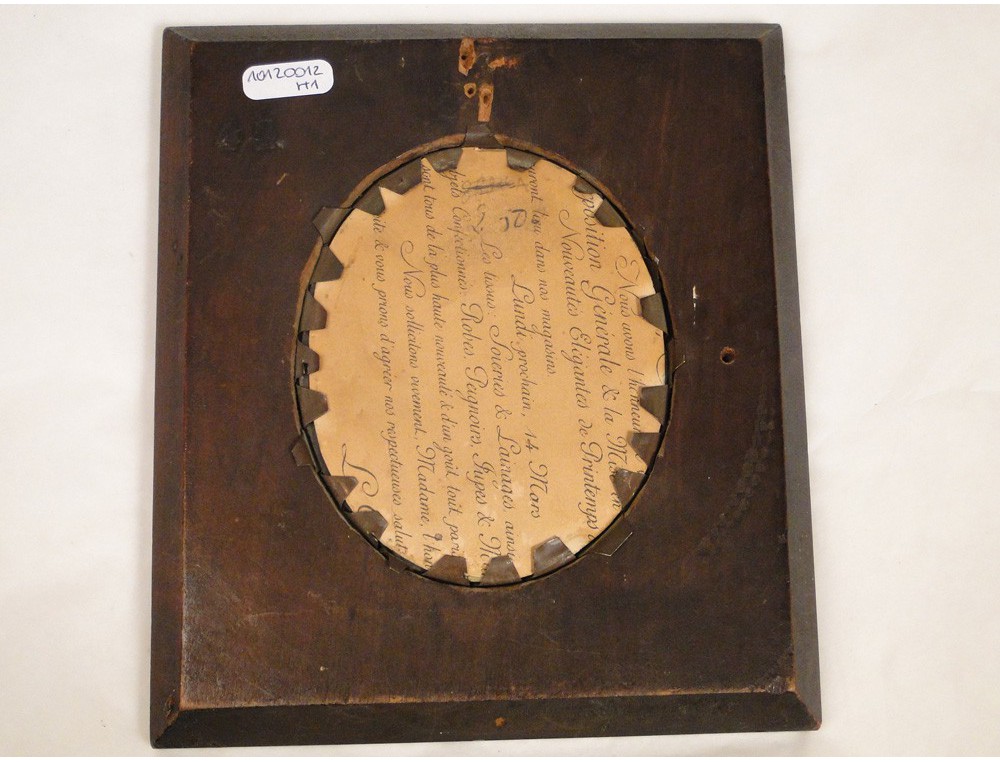 10120012
H1
Nous avons l'honneur
position Générale & la M
Nouveautés Elégantes de Printemps
ront lieu dans nos magasins
Lundi prochain, 14 Mars
Les tissus: Soieries & Lainages ainsi
jets Confectionnés: Robes, Peignoirs, Jupes & M
sont tous de la plus haute nouveauté & d'un goût tout par
Nous sollicitons vivement, Madame, l'ho
ite & vous prions d'agréer nos respectueuses salut